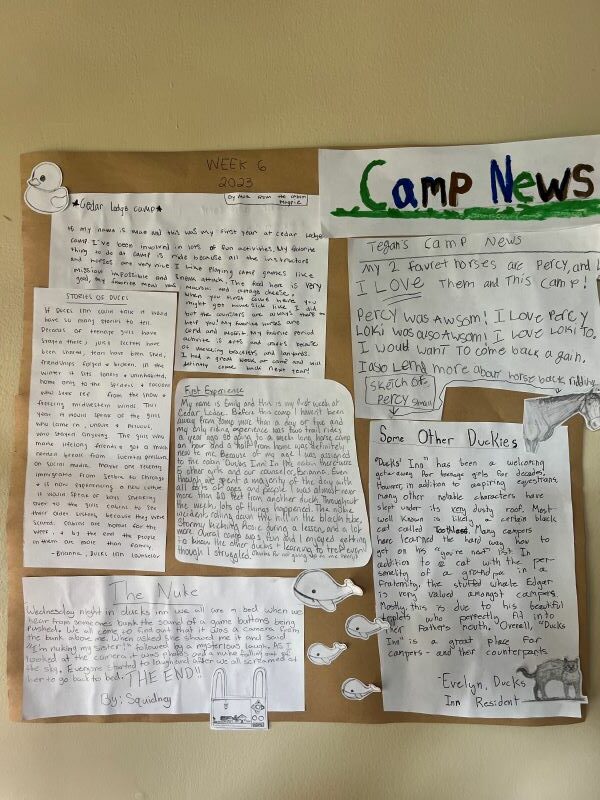 WEEK 6
2023
Camp News
★Cedar Lodge Camp★
By Mae from the cabin
Hi My name is Mae and this was my first year at cedar Lodge
camp I've been involved in lots of fun activities. My favorite
thing to do at camp is ride because all the instructors
and horses are very nice I like playing camp games like
Missious impossible and sneak attack. The food here is very
good, my favorite meal was
macaroni and cottage cheese,
when you first come here you
might get home sick like I did
but the counslers are always there to
help you! My favorite horses are
candi and Merlin. My favorite period
activity is arts and crafts because
of weaving bracelets and lanyards.
I had a great week at camp and will
definitly come back next year!
Tegan's Camp News
My 2 favret horses are Percy, and L
I LOVE Them and This Camp!
Percy was Awsom! I Love Percy
Loki was auso Awsom! I Love Loki To.
I would want To come back again.
I also Lernd more about horse back ridding
Sketch of
Percy
STORIES OF DUCKS
If Ducks Inn could talk it would
have so many stories to tell.
Decades of teenage girls have
stayed there; just secrets have
been shared, tears have been shed,
friendships forged & broken. In the
winter it sits lonely & uninhabited,
home only to the spiders & raccoons
who seek refuge from the snow &
freezing midwestern winds. This
year it would speak of the girls
who came in, unsure & nervous,
who started singing. The girls who
made lifelong friends & got a much
needed break from
on social media. Maybe one recently
immigrated from Serbia to Chicago
& is now experiencing a new culture.
It would speak of boys sneaking
over to the girls cabins to see
their older sisters because they were
scared. Cabins are homes for the
week, & by the end the people
in them are more than family.
-Brianna, Ducks Inn Counselor
First Experience
My name is Emily and this is my first week at
Cedar Lodge. Before this camp I haven't been
away from home more than a day or two and
my only riding experience was two trail rides
a year ago. So going to a much long horse camp
an hour and a half from home was definitely
new to me. Because of my age I was assigned
to the cabin Ducks Inn. In the cabin there were
6 other girls and our counselor, Brianna. Even
though we spent a majority of the day with
all sorts of ages and people I was almost never
more than 20 feet from another duck. Throughout
the week, lots of things happened. The nuke
incident, rolling down the hill in the black tube,
Stormy bucking during a lesson, and a lot
more. Overall camp was fun and I enjoyed getting
to know the other ducks & learning to trot even
though I struggled.
Some Other Duckies
"Ducks' Inn" has been a welcoming
getaway for teenage girls for decades.
However, in addition to aspiring equestrians,
many other notable characters have
slept under its very dusty roof. Most
well known is likely a certain black
cat called Toothless. Many campers
have learned the hard way how to
get on his "you're next" list. In
addition to a cat with the per-
sonality of a grandpa in a
fraternity, the stuffed whale Edgar
is very valued amongst campers.
Mostly, this is due to his beautiful
triplets who perfectly fit into
their father's mouth. Overall, "Ducks
Inn" is a great place for
campers - and their counterparts.
-Evelyn, Ducks
Inn Resident
The Nuke
Wednesday night in ducks inn we all are n bed when we
hear from someones bunk the sound of a game buttons being
pushed. We all come to find out that it was a camera from
the bank above me. When asked she showed me it and said
"I'm nuking my sister!" followed by a mysterious laugh. As I
looked at the camera it was photo, and a nuke falling out of
the sky. Everyone started to laugh and after we all screamed at
her to go back to bed. THE END!!
By: Squidney